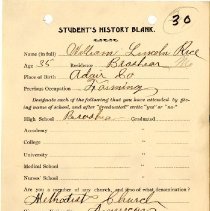 30
STUDENT'S HISTORY BLANK.
Name (in full) William Lincoln Rice
Age 35 Residence Brashear Mo
Place of Birth Adair Co
Previous Occupation Farming
Designate each of the following that you have attended by giving name of school, and after "Graduated" write "yes" or "no"
High School Brashear Graduated
Academy "
College "
University "
Medical School "
Nurses' School "
Are you a member of any church, and if so of what denomination?
Methodist Church